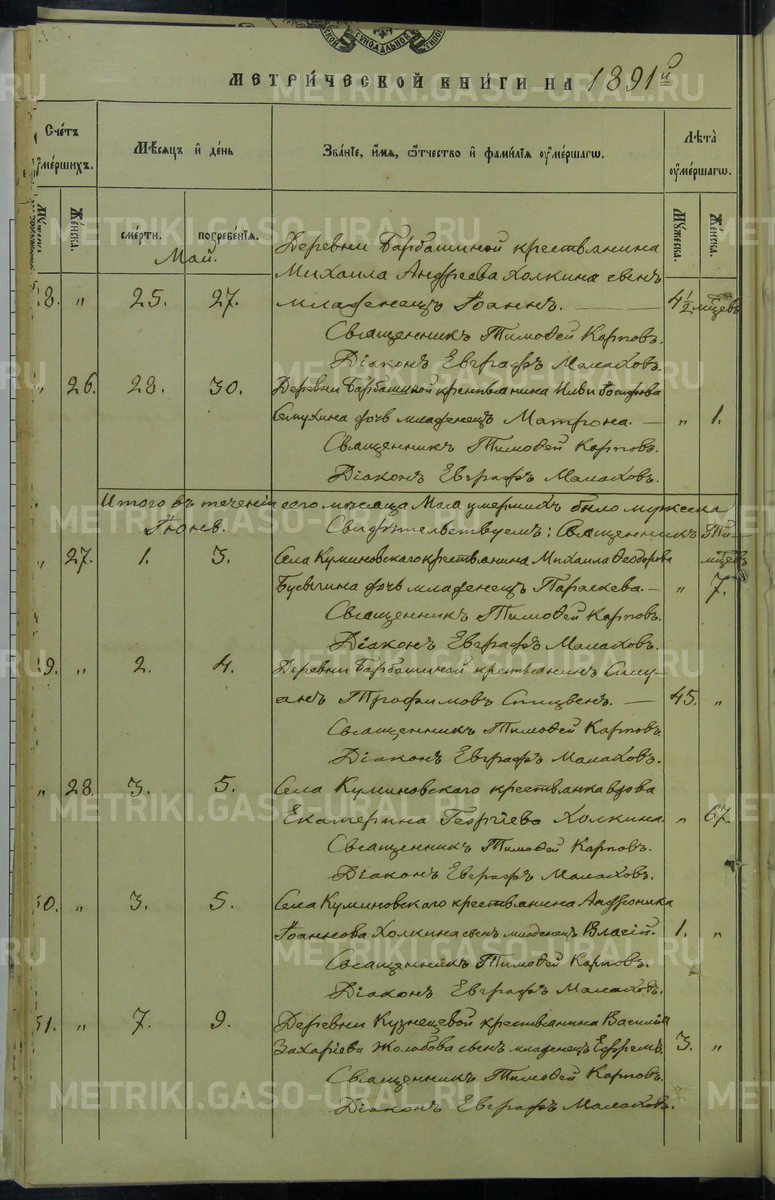 МЕТРИ́ЧЕСКОЙ КНИ́ГИ НА 1891й
Сче́тъ умершихъ.
Мѣ́сяцъ и де́нь
Зва́нїе, и́мѧ, ѻ́тчество и фами́лїѧ оумершагѡ.
Лѣта̀ оумершагѡ.
Же́нска.
сме́рти.
погребе́нїѧ.
Му́жеска.
Же́нска.
Май.
Деревни Барбашиной крестьянина
Михаила Андреева Холкина сынъ
8. " 25. 27. младенецъ Іоаннъ. — 4½ мѣсяцевъ
Священникъ Тимофей Карповъ.
Діаконъ Евграфъ Малаховъ.
" 26. 28. 30. Деревни Барбашиной крестьянина
дочь младенецъ Матрона. — " 1.
Священникъ Тимофей Карповъ.
Діаконъ Евграфъ Малаховъ.
Итого въ теченіи сего мѣсяца Мая умершихъ было мужска
Іюнь. Свидѣтельствуемъ: Священникъ Ти-
" 27. 1. 3. Села Куминовскаго крестьянина Михаила Феодорова мѣсяцевъ
дочь младенецъ Параскева. — " 7.
Священникъ Тимофей Карповъ.
Діаконъ Евграфъ Малаховъ.
9. " 2. 4. Деревни Барбашиной крестьянинъ
Трофимовъ — 45. "
Священникъ Тимофей Карповъ.
Діаконъ Евграфъ Малаховъ.
" 28. 3. 5. Села Куминовскаго крестьянка вдова
Екатерина Георгіева Холкина. " 67.
Священникъ Тимофей Карповъ.
Діаконъ Евграфъ Малаховъ.
50. " 3. 5. Села Куминовскаго крестьянина Андроника
Іоаннова Холкина сынъ младенецъ Власій. 1. "
Священникъ Тимофей Карповъ.
Діаконъ Евграфъ Малаховъ.
51. " 7. 9. Деревни Кузнецовой крестьянина Василія
Захаріева Жолобова сынъ младенецъ Ефремъ. 3. "
Священникъ Тимофей Карповъ.
Діаконъ Евграфъ Малаховъ.
METRIKI.GASO-URAL.RU